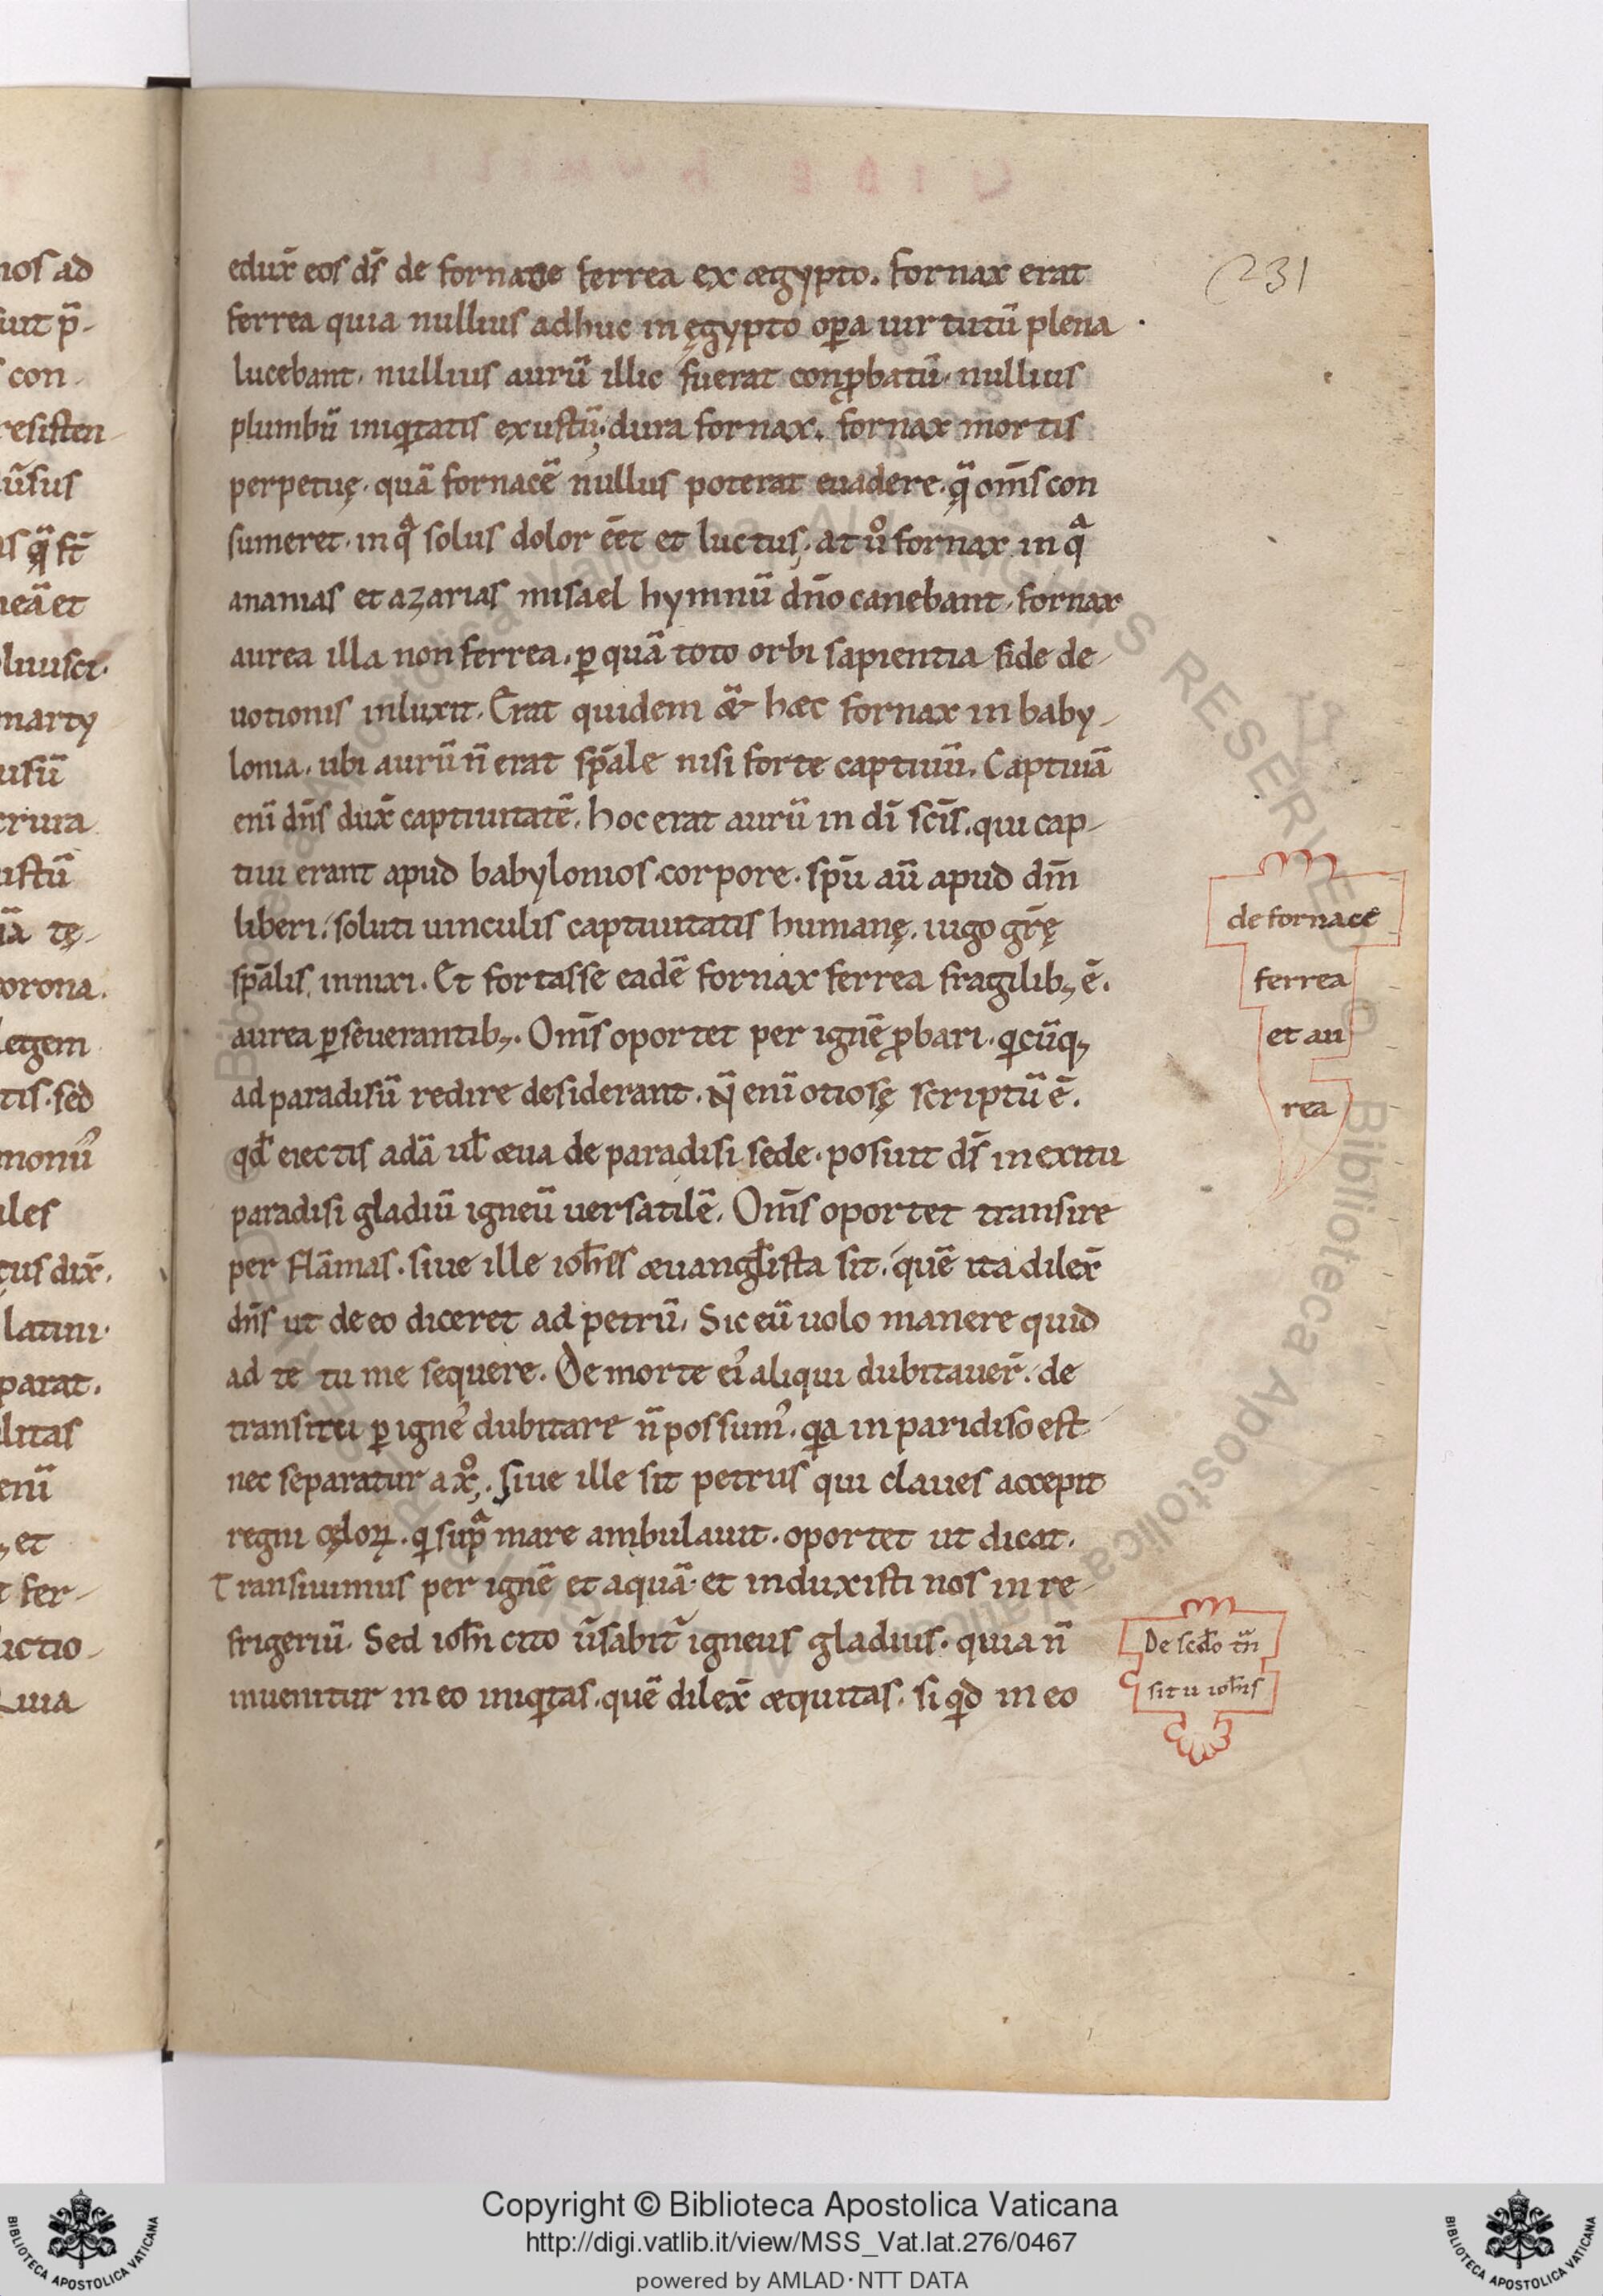 231
edux̄ eos dс̄ de fornace ferrea ex ægypto. fornax erat
ferrea quia nullius adhuc in ęgypto oꝑa uirtutū plena
lucebant. nullius aurū illic fuerat conꝓbatū. nullius
plumbū iniqͥtatis exustū; dura fornax. fornax mortis
perpetuę. quā fornacē nullus poterat euadere. q̄ om̄s con
sumeret. in qͣ solus dolor eēt et luctus. at ůo fornax in qͣ
ananias et azarias misael hymnū dn̄o canebant. fornax
aurea illa non ferrea. ꝑ quā toto orbi sapientia fide de-
uotionis inluxit. Erat quidem & hæc fornax in baby-
lonia. ubi aurū n̄ erat sp̄ale nisi forte captiuū. Captiuā
enī dn̄s dux̄ captiuitatē. hoc erat aurū in dī sc̄is. qui cap-
tiui erant apud babylonios corpore. spū aū apud dm̄
liberi. soluti uinculis captiuitatis humanę. iugo gr̄ę
sp̄alis innixi. Et fortasse eadē fornax ferrea fragilib; ē.
aurea ꝑseuerantib;. Om̄s oportet per ignē ꝓbari. qͥcūq;
ad paradisū redire desiderant. N̄ enī otiosę scriptū ē.
qđ eiectis adā ul̄ æua de paradisi sede. posuit ds̄ in exitu
paradisi gladiū igneū uersatilē. Om̄s oportet transire
per flāmas. siue ille ioh̄s æuangl̄ista sit. quē ita dilex̄
dn̄s ut de eo diceret ad petrū. Sic eū uolo manere quid
ad te tu me sequere. De morte eiꝰ aliqui dubitauer̄. de
transitu ꝑ ignē dubitare n̄ possumꝰ. qͥa in paridiso est
nec separatur a xp̄o. siue ille sit petrus qui claues accepit
regni cęloꝝ. qͥ supͣ mare ambulauit. oportet ut dicat.
Transiuimus per ignē et aquā. et induxisti nos in re-
frigeriū. Sed ioh̄i cito ūsabit̄ igneus gladius. quia n̄
inuenitur in eo iniqͥtas. quē dilex̄ æquitas. si qͥd in eo
de fornace
ferrea
et au
rea
sit u ioh̄is
Copyright © Biblioteca Apostolica Vaticana
http://digi.vatlib.it/view/MSS_Vat.lat.276/0467
powered by AMLAD·NTT DATA